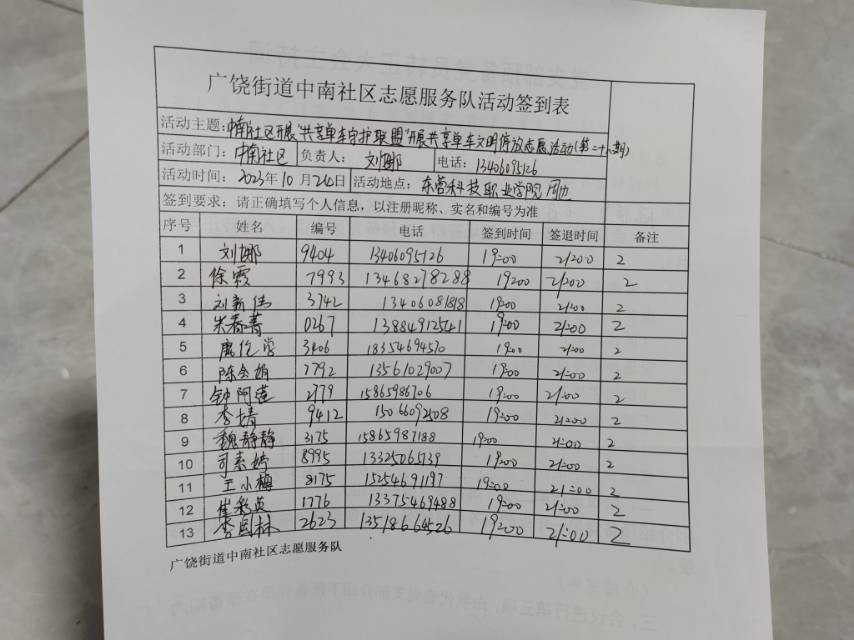 广饶街道中南社区志愿服务队活动签到表
活动主题：中南社区开展"共享单车守护联盟"开展共享单车文明停放志愿活动(第二十六期)
活动部门：中南社区 负责人：刘娜 电话：13406095126
活动时间：2023年10月24日 活动地点：东营科技职业学院周边
签到要求：请正确填写个人信息，以注册昵称、实名和编号为准
序号 姓名 编号 电话 签到时间 签退时间 备注
1 刘娜 9404 13406095126 19:00 21:00 2
2 徐霞 7993 13468278288 19:00 21:00 2
3 刘新伟 3742 13406081818 19:00 21:00 2
4 朱春菁 0267 13884912541 19:00 21:00 2
5 3406 18354694570 19:00 21:00 2
6 陈会娟 7792 13561029007 19:00 21:00 2
7 钟阿莲 2779 15865986706 19:00 21:00 2
8 李婧 9412 15066092508 19:00 21:00 2
9 魏静静 3175 15865987188 19:00 21:00 2
10 司素婷 8995 13325065139 19:00 21:00 2
11 王小梅 8175 15254691197 19:00 21:00 2
12 崔彩英 1776 13375469488 19:00 21:00 2
13 李国林 2623 13518664526 19:00 21:00 2
广饶街道中南社区志愿服务队